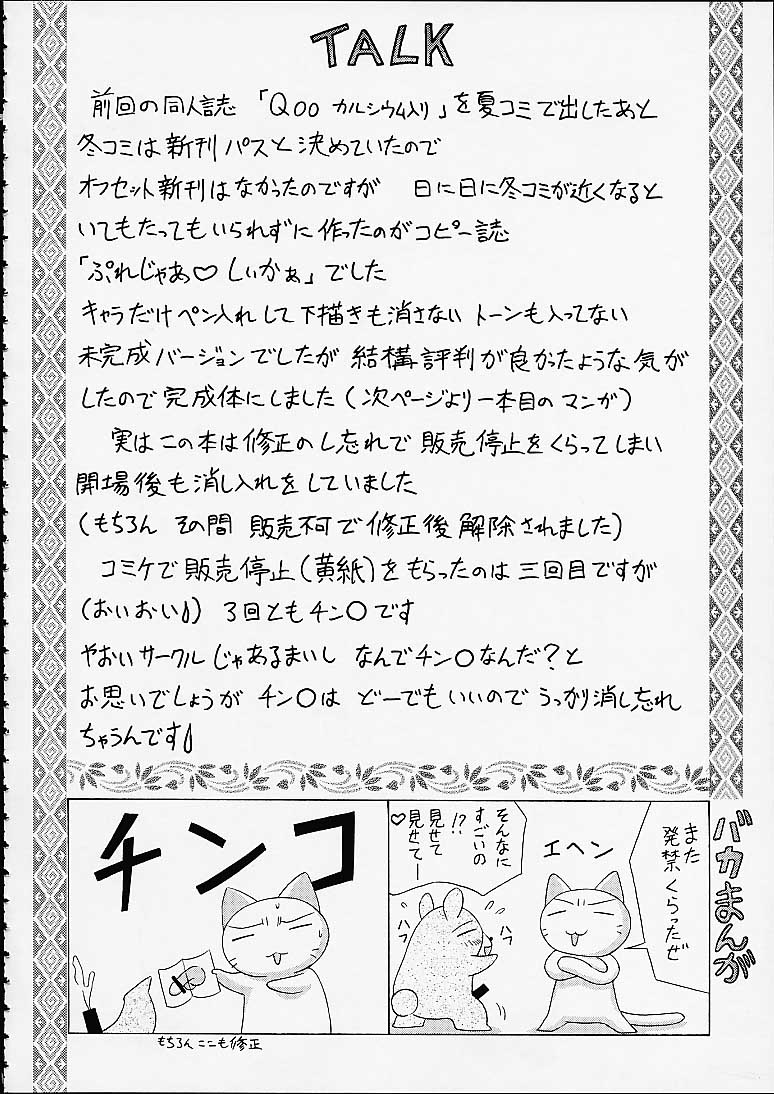 TALK
前回の同人誌「Qoo カルシウム入り」を夏コミで出したあと
冬コミは新刊パスと決めていたので
オフセット新刊はなかったのですが 日に日に冬コミが近くなると
いてもたってもいられずに作ったのがコピー誌
「ぷれじゃあ♡しぃかぁ」でした
キャラだけペン入れして下描きも消さない トーンも入ってない
未完成バージョンでしたが 結構評判が良かったような気が
したので完成体にしました(次ページより一本目のマンガ)
実はこの本は修正のし忘れで 販売停止をくらってしまい
開場後も消し入れをしていました
(もちろん その間 販売不可で修正後解除されました)
コミケで販売停止(黄紙)をもらったのは三回目ですが
(おいおい) 3回ともチン○です
やおいサークルじゃあるまいし なんでチン○なんだ?と
お思いでしょうが チン○は どーでもいいので うっかり消し忘れ
ちゃうんです
バカまんが
また
発禁くらったぜ
エヘン
そんなに
すごいの
!?
見せて
見せてー
♡
ハフ
ハフ
チンコ
もちろんここも修正